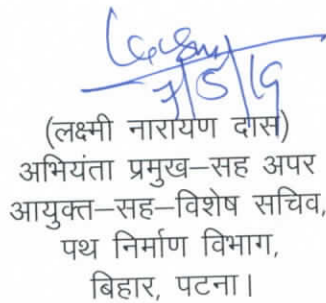 7/5/19
(लक्ष्मी नारायण दास)
अभियंता प्रमुख–सह अपर
आयुक्त–सह–विशेष सचिव,
पथ निर्माण विभाग,
बिहार, पटना।